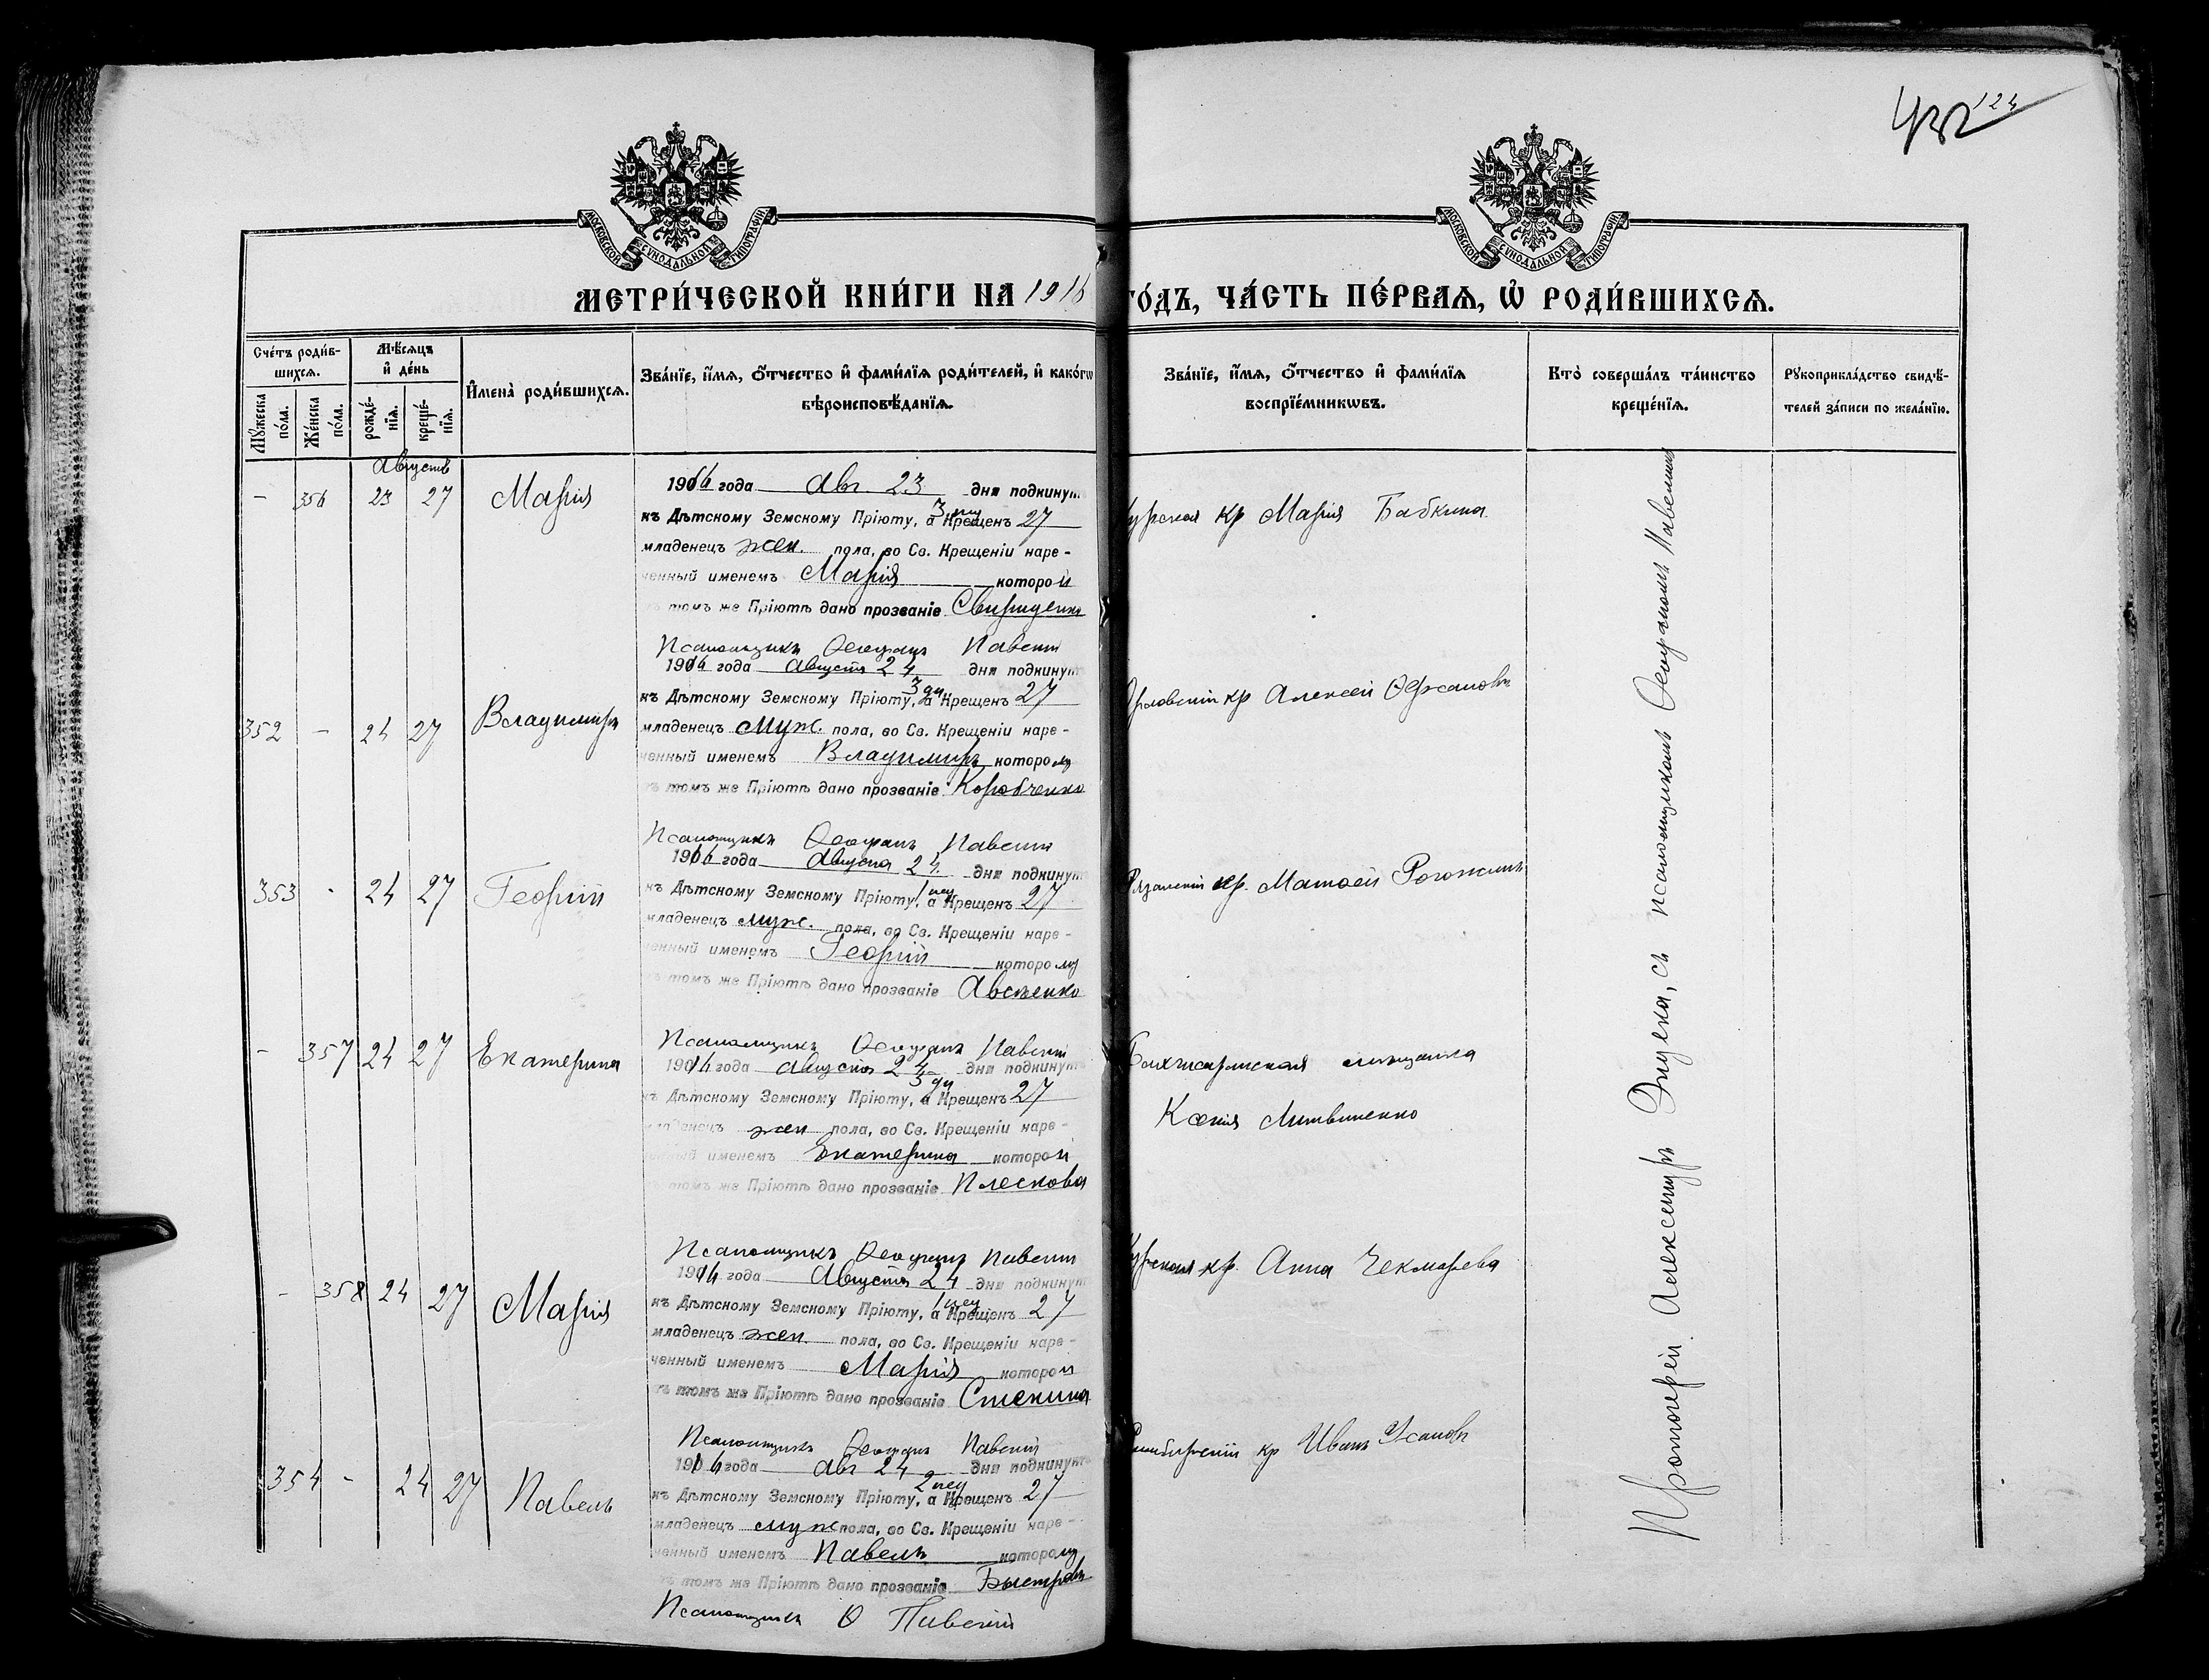 432 124
МОСКОВСКОЙ СѴНОДАЛЬНОЙ ТИПОГРАФІИ
МОСКОВСКОЙ СѴНОДАЛЬНОЙ ТИПОГРАФІИ
МЕТРИ́ЧЕСКОЙ КНИ́ГИ НА 1916 ГО́ДЪ, ЧА́СТЬ ПЕ́РВАЯ, Ѽ РОДИ́ВШИХСЯ.
Сче́тъ роди́вшихся.
Мꙋ́жеска по́ла.
Же́нска по́ла.
Мѣ́сяцъ и҆ де́нь
рожде́нїя.
креще́нїя.
И҆мена̀ роди́вшихся.
Зва́нїе, и҆́мя, ѻ҆́тчество и҆ фами́лїя роди́телей, и҆ како́гѡ
вѣроисповѣ́данїя.
Зва́нїе, и҆́мя, ѻ҆́тчество и҆ фами́лїя
воспрїе́мникѡвъ.
Кто̀ соверша́лъ та́инство
креще́нїя.
Рꙋкоприкла́дство свидѣ́-
телей за́писи по жела́нїю.
Августъ
- 356 23 27 Марія
1916 года Авг 23 дня подкинут
къ Дѣтскому Земскому Пріюту, а Крещенъ 27
младенецъ жен. пола, во Св. Крещеніи наре-
ченный именемъ Марія которой
въ томъ же Пріютѣ дано прозваніе Свириденко
Псаломщикъ Ѳеофанъ Павскій
Курская кр Марія Бабкина
352 - 24 27 Владимиръ
1916 года Августа 24 дня подкинут
къ Дѣтскому Земскому Пріюту, 3 дн а Крещенъ 27
младенецъ муж. пола, во Св. Крещеніи наре-
ченный именемъ Владимиръ которому
въ томъ же Пріютѣ дано прозваніе Коробченко
Псаломщикъ Ѳеофанъ Павскій
Орловскій кр Алексей
353 - 24 27 Георгій
1916 года Августа 24 дня подкинут
къ Дѣтскому Земскому Пріюту, 1 нед а Крещенъ 27
младенецъ муж. пола, во Св. Крещеніи наре-
ченный именемъ Георгій которому
въ томъ же Пріютѣ дано прозваніе Авсѣенко
Псаломщикъ Ѳеофанъ Павскій
Рязанскій кр. Матѳей Рогожинъ
- 357 24 27 Екатерина
1916 года Августа 24 дня подкинут
къ Дѣтскому Земскому Пріюту, 3 дн а Крещенъ 27
младенецъ жен пола, во Св. Крещеніи наре-
ченный именемъ Екатерина которой
въ томъ же Пріютѣ дано прозваніе Плескова
Псаломщикъ Ѳеофанъ Павскій
мѣщанка
Ксенія Литвиненко
- 358 24 27 Марія
1916 года Августа 24 дня подкинут
къ Дѣтскому Земскому Пріюту, 1 нед а Крещенъ 27
младенецъ жен. пола, во Св. Крещеніи наре-
ченный именемъ Марія которой
въ томъ же Пріютѣ дано прозваніе Стенина
Псаломщикъ Ѳеофанъ Павскій
Курская кр. Анна Чекмарева
354 - 24 27 Павелъ
1916 года Авг 24 дня подкинутъ
къ Дѣтскому Земскому Пріюту, 2 нед а Крещенъ 27
младенецъ муж пола, во Св. Крещеніи наре-
ченный именемъ Павелъ которому
въ томъ же Пріютѣ дано прозваніе Быстровъ
Псаломщикъ Ѳ Павскій
Симбирскій кр Иванъ Усановъ
Протоіерей Александръ Эндека, съ псаломщикомъ Ѳеофаномъ Павскимъ